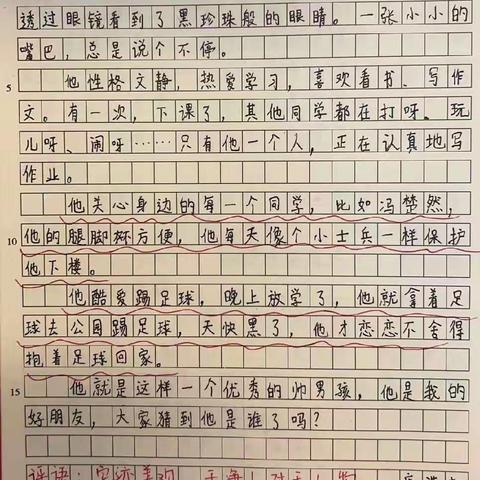 透过眼镜看到了黑珍珠般的眼睛。一张小小的
嘴巴，总是说个不停。
5 他性格文静，热爱学习，喜欢看书、写作
文。有一次，下课了，其他同学都在打呀、玩
儿呀、闹呀……只有他一个人，正在认真地写
作业。
他关心身边的每一个同学，比如冯楚然，
10 他的腿脚不方便，他每天像个小士兵一样保护
他下楼。
他酷爱踢足球，晚上放学了，他就拿着足
球去公园踢足球，天快黑了，他才恋恋不舍得
抱着足球回家。
15 他就是这样一个优秀的帅男孩，他是我的
好朋友，大家猜到他是谁了吗？
评语：字迹美观